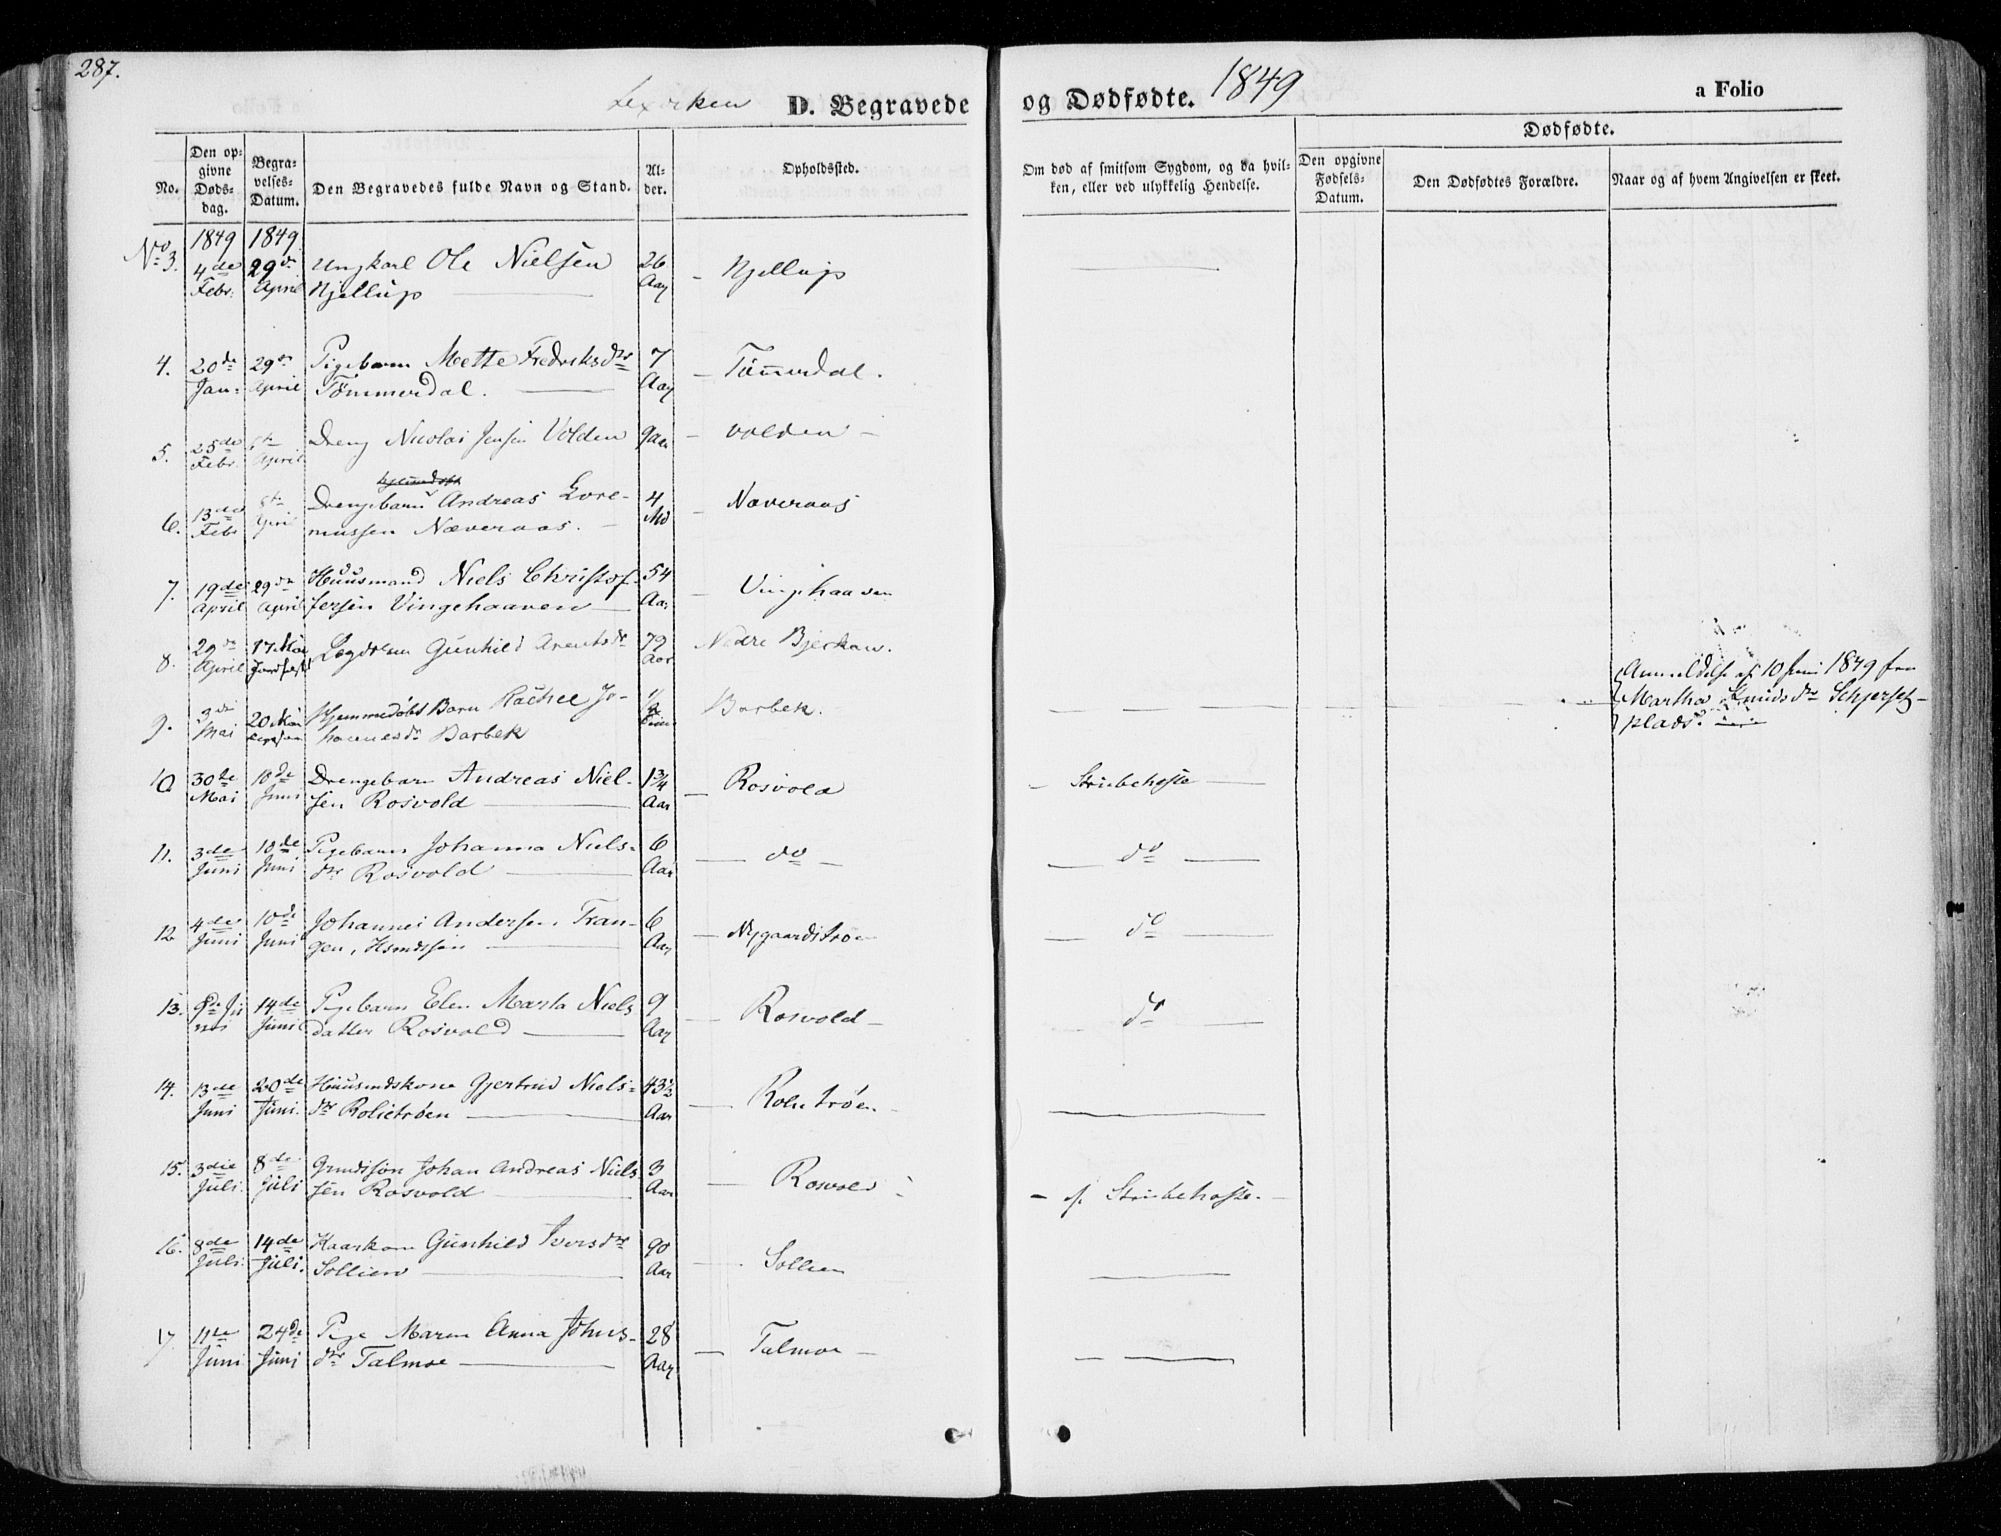 287.
D. Begravede og Dødfødte. 1849 a Folio
No.
Den op-
givne
Døds-
dag.
Begra-
velses-
Datum.
Den Begravedes fulde Navn og Stand.
Al-
der.
Opholdssted.
Om død af smitsom Sygdom, og da hvil-
ken, eller ved ulykkelig Hendelse.
Dødfødte.
Den opgivne
Fødsels-
Datum.
Den Dødfødtes Forældre.
Naar og af hvem Angivelsen er skeet.
1849 1849
No 3. 4de 29de Ungkarl Ole Nielsen 26
Febr. April Hjellup Aar Hjellup
4. 20de 29de Pigebarn Mette Fredriksdtr 7 Tömmerdal.
Jan. April Tømmerdal. Aar
5. 25de Dreng Nicolai Jensen Volden 9 Aar volden
Febr. April
6. 13de 8de Drengebarn Andreas Lore- 4 Næveraas
Febr April mussen Næveraas. Md
7. 19de 29de Huusmand Niels Christof- 54 Vingehaaven
April April fersen Vingehaaven Aar
8. 29de 17 Mai Gunhild Arentsdr 79 Nedre
April Aar
9. 3de 20 Mai Hjemmedøbt Barn Rachel Jo- 1/2 Barbek.
Mai hannesdr Barbek
Anmeldelse af 10 Juni 1849 fra
Martha Knudsdtr
plads.
10 30te 10de Drengebarn Andreas Niel- 1 3/4 Rosvold Strubehoste
Mai Juni sen Rosvold Aar
11. 3de 10de Pigebarn Johanna Niels- 6 do do
Juni Juni dtr Rosvold Aar
12 4de 10de Johannes Andersen Tran- 6 Nygaardstrøe do
Juni Juni gen, Aar
13. 8de Ju 14de Pigebarn Elen Marta Niels 9 Rosvold do
ni Juni datter Rosvold Aar
14. 13de 20de Huusmdskone Gjertrud Niels- 43 1/2
Juni Juni. dtr Rolietrøen Aar
15. 3die 8de Johan Andreas Niels 3 Rosvold af Strubehoste.
Juli. Juli sen Rosvold Aar
16. 8de 14de Gunhild Iversdtr 90 Sollien
Juli. Juli. Sollien Aar
17 11te 24de Pige Maren Anna Johns- 28 Talmoe
Juni Juni dtr Talmoe Aar